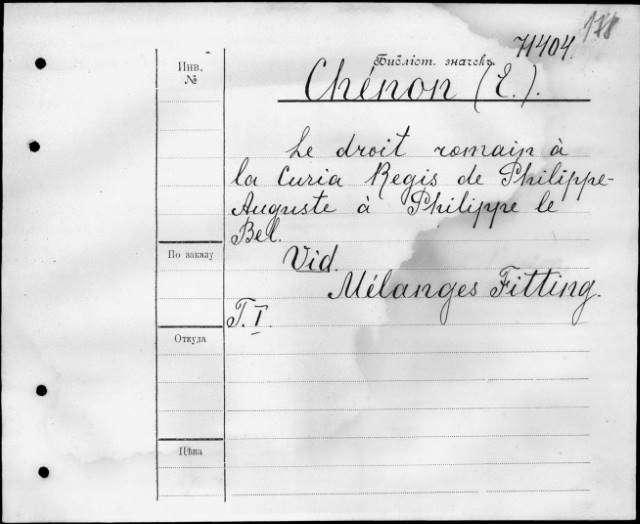 178
71404.
Инв. №
Библіот. значекъ
Chénon (E.).
Le droit romain à
la Curia Regis de Philippe-
Auguste à Philippe le
Bel.
По заказу
Vid.
Mélanges Fitting.
T. I.
Откуда
Цѣна